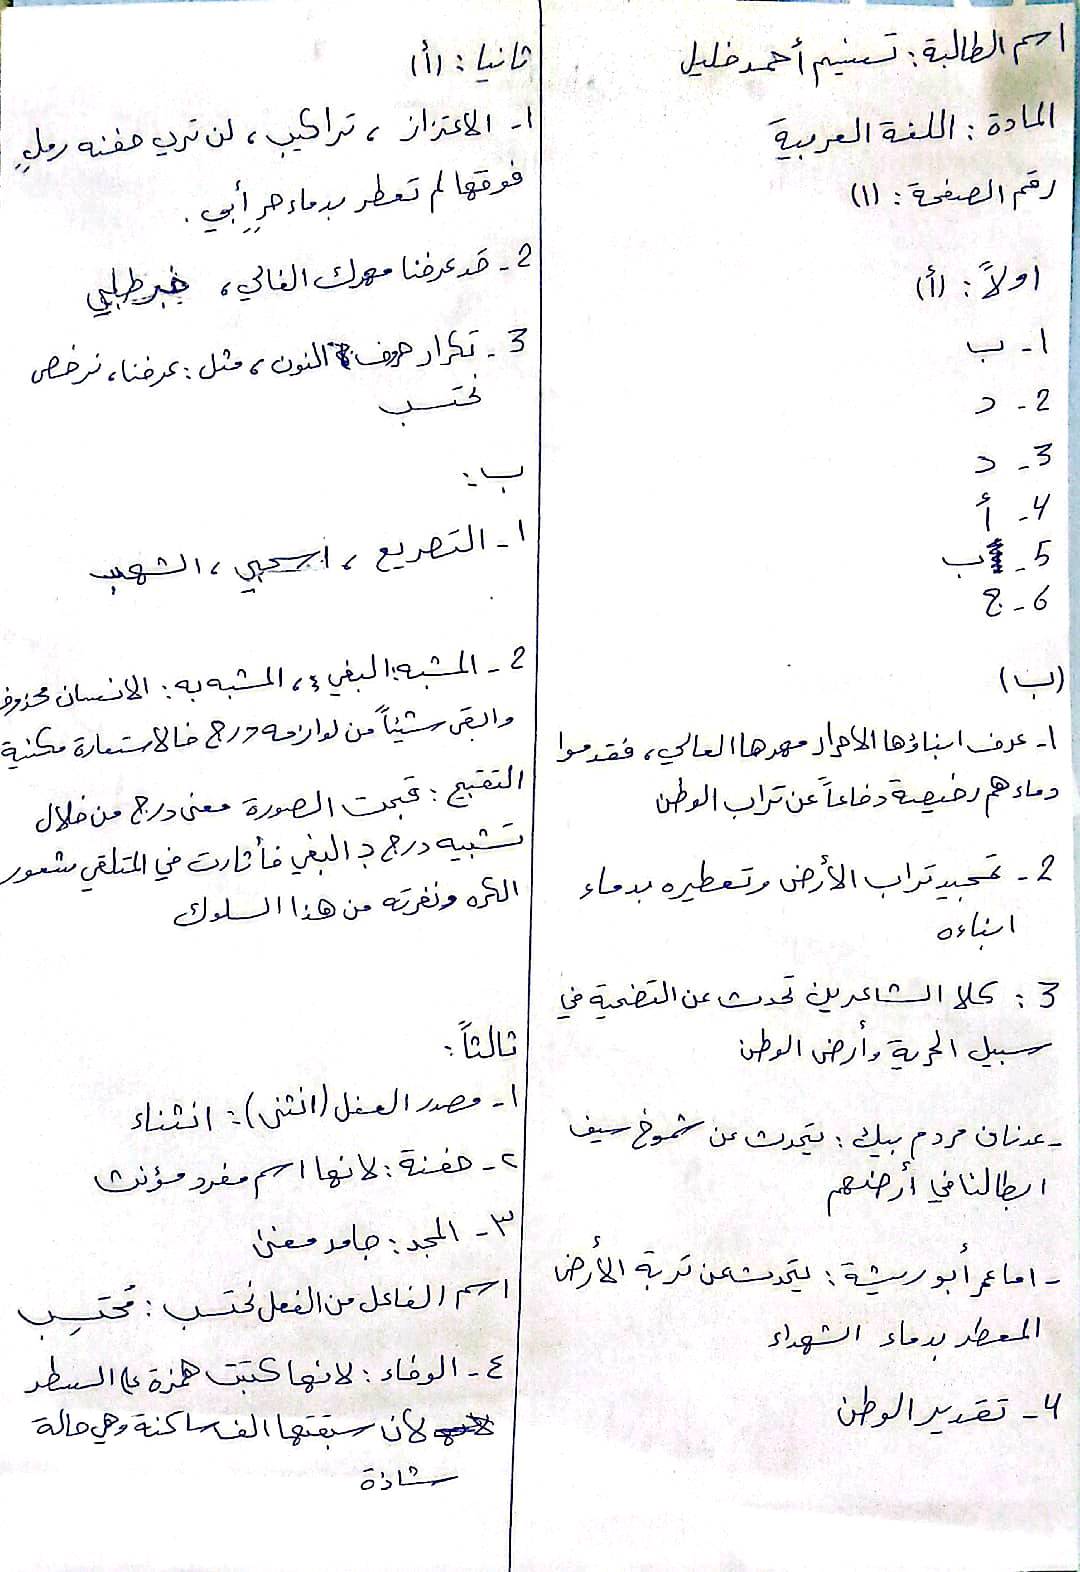 اسم الطالبة: تسنيم أحمد خليل
المادة: اللغة العربية
رقم الصفحة: (١)
اولاً: (أ)
١- ب
2- د
3- د
4- أ
5- ب
6- ج
(ب)
١- عرف ابناؤها الاحرار مهرها الغالي، فقدموا
دماءهم رخيصة دفاعاً عن تراب الوطن
2- تمجيد تراب الأرض وتعطيره بدماء
ابناءه
3: كلا الشاعرين تحدث عن التضحية في
سبيل الحرية وأرض الوطن
- عدنان مردم بيك: يتحدث عن شموخ سيف
ابطالنا في أرضهم
- اما عمر أبو ريشة: يتحدث عن تربة الأرض
المعطر بدماء الشهداء
4- تقدير الوطن
ثانيا: (أ)
١- الاعتزاز، تراكيب، لن تري حفنه رملٍ
فوقها لم تعطر بدماء حرٍ أبي.
2- قد عرفنا مهرك الغالي،
3- تكرار حروف النون، مثل: عرفنا، نرخص
نحتسب
ب:
١- التصريع، اسحبي، الشهب
2- المشبه: البغي، المشبه به: الانسان محذوف
وابقى شيئاً من لوازمه درج فالاستعارة مكنية
التقبيح: قبحت الصورة معنى درج من خلال
تشبيه درج بـ البغي فأثارت في المتلقي شعور
الكره ونفرته من هذا السلوك
ثالثاً:
١- مصدر الفعل (انثنى): انثناء
٢- حفنة: لانها اسم مفرد مؤنث
٣- المجد: جامد معنى
اسم الفاعل من الفعل نحتسب: مُحتسِب
٤- الوفاء: لانها كتبت همزة على السطر
لأن سبقتها الف ساكنة وهي حالة
شاذة